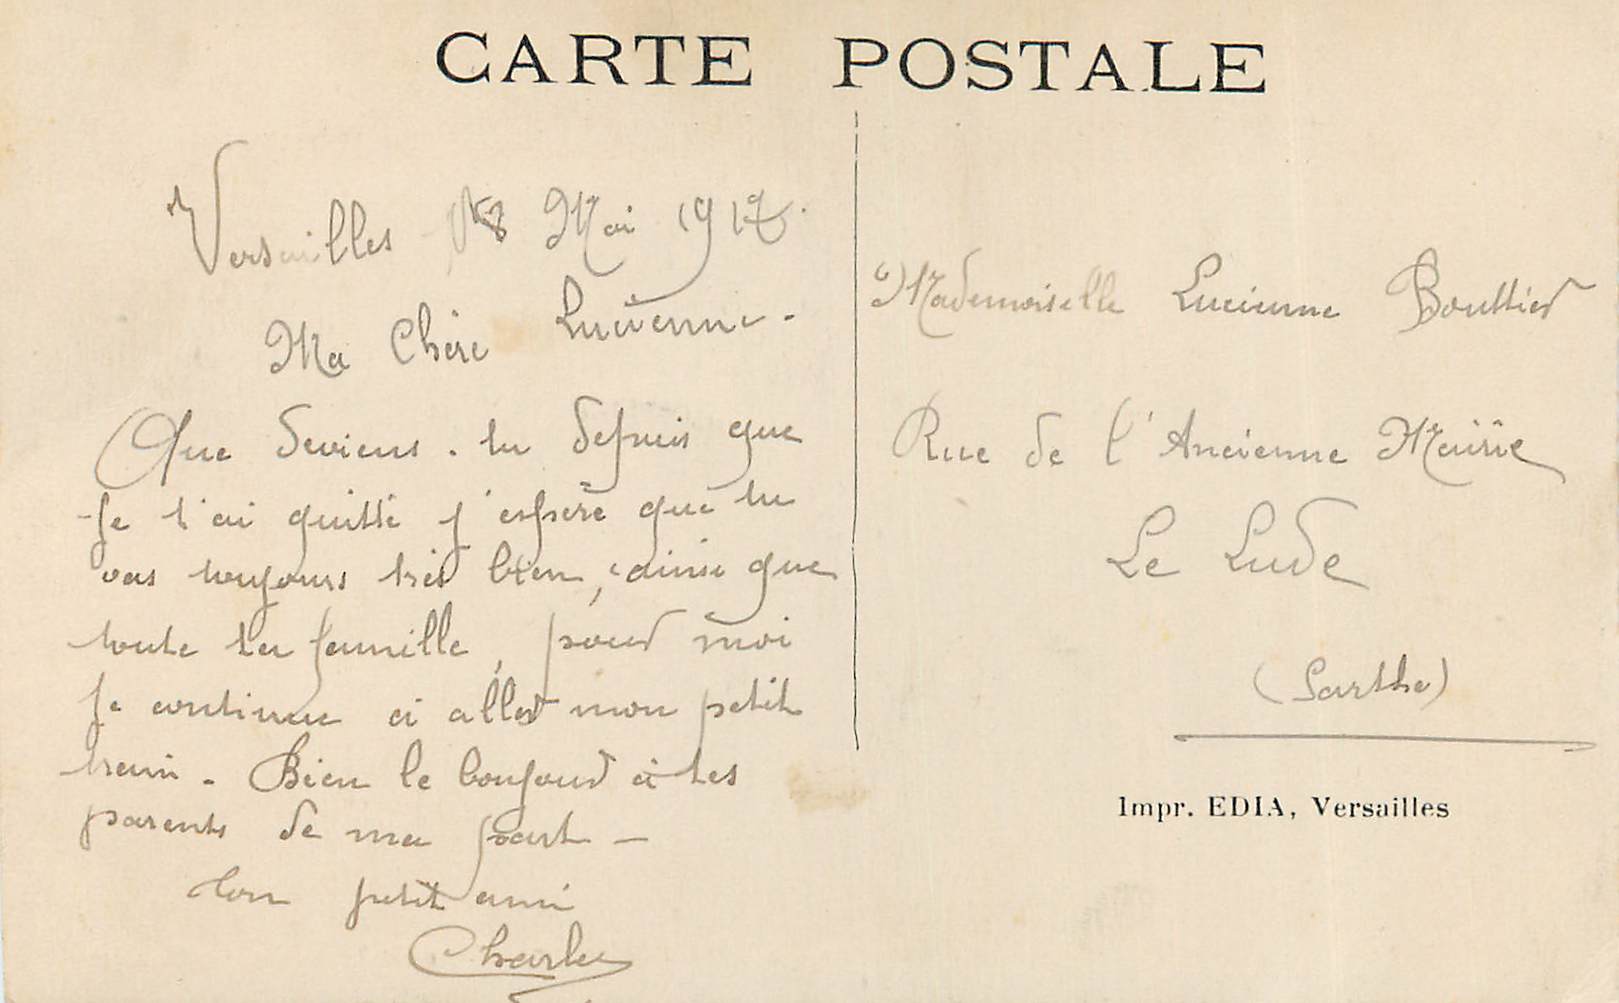 CARTE POSTALE
Versailles 18 Mai 1917.
Ma Chère Lucienne.
Que deviens-tu depuis que
je t'ai quitté j'espère que tu
vas toujours très bien, ainsi que
toute ta famille, pour moi
je continue à aller mon petit
train. Bien le bonjour à tes
parents de ma part -
Ton petit ami
Charles
Mademoiselle Lucienne Bouttier
Rue de l'Ancienne Mairie
Le Lude
(Sarthe)
Impr. EDIA, Versailles